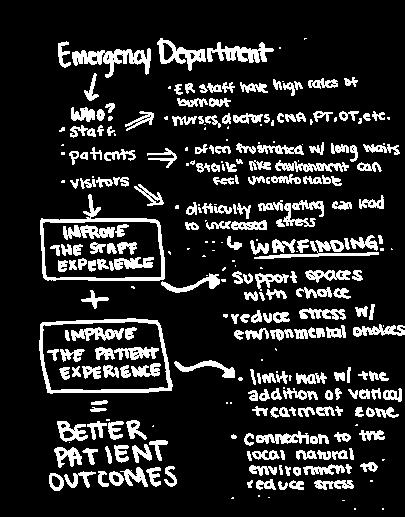 Emergency Department
Who?
• staff
• ER staff have high rates of
burnout
• nurses, doctors, CNA, PT, OT, etc.
• patients
• often frustrated w/ long waits
• "sterile" like environment can
feel uncomfortable
• visitors
• difficulty navigating can lead
to increased stress
WAYFINDING!
IMPROVE
THE STAFF
EXPERIENCE
• Support spaces
with choice
• reduce stress w/
environmental choices
+
IMPROVE
THE PATIENT
EXPERIENCE
• limit wait w/ the
addition of vertical
treatment zone
• Connection to the
local natural
environment to
reduce stress
=
BETTER
PATIENT
OUTCOMES